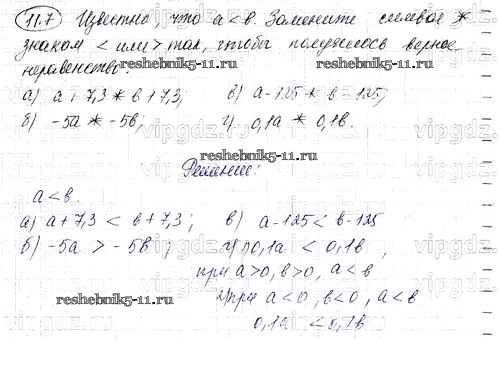 11.7 Известно, что a < в. Замените символ *
знаком < или > так, чтобы получилось верное
неравенство:
reshebnik5-11.ru
reshebnik5-11.ru
а) a + 7,3 * в + 7,3; в) a - 125 * в - 125;
б) -5a * -5в; г) 0,1a * 0,1в.
vipgdz.ru
reshebnik5-11.ru
Решение:
a < в.
а) a + 7,3 < в + 7,3; в) a - 125 < в - 125
б) -5a > -5в; г) 1) 0,1a < 0,1в,
при a > 0, в > 0, a < в
reshebnik5-11.ru
2) при a < 0, в < 0, a < в
0,1a < 0,1в